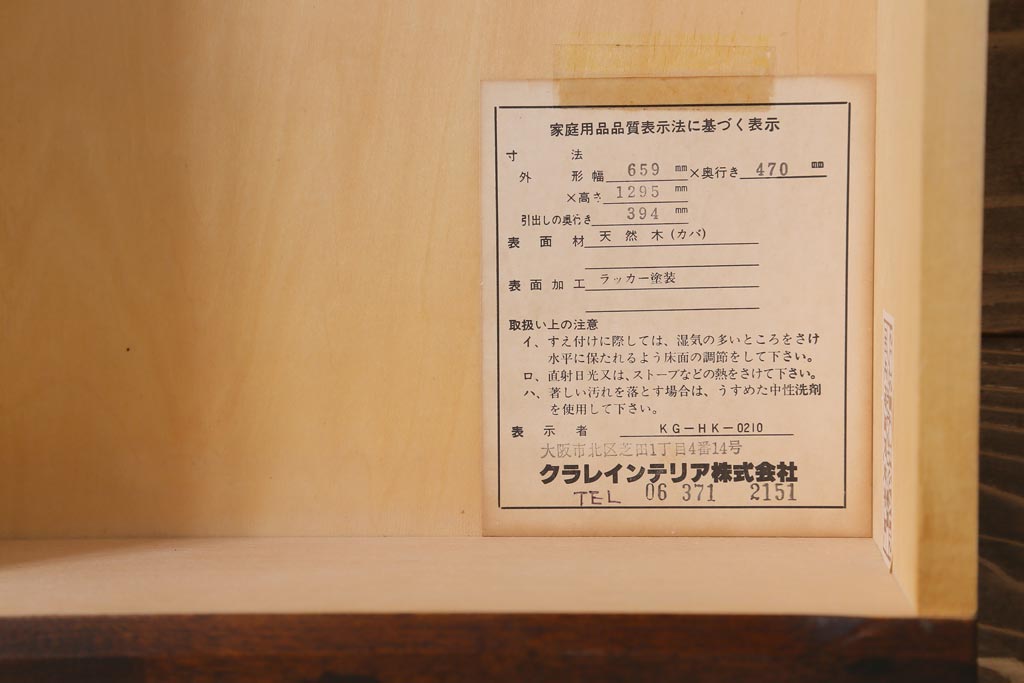 家庭用品品質表示法に基づく表示
寸法
外形幅 659 mm ×奥行き 470 mm
×高さ 1295 mm
引出しの奥行き 394 mm
表面材 天然木(カバ)
表面加工 ラッカー塗装
取扱い上の注意
イ、すえ付けに際しては、湿気の多いところをさけ
水平に保たれるよう床面の調節をして下さい。
ロ、直射日光又は、ストーブなどの熱をさけて下さい。
ハ、著しい汚れを落とす場合は、うすめた中性洗剤
を使用して下さい。
表示者 KG-HK-0210
大阪市北区芝田1丁目4番14号
クラレインテリア株式会社
TEL 06 371 2151